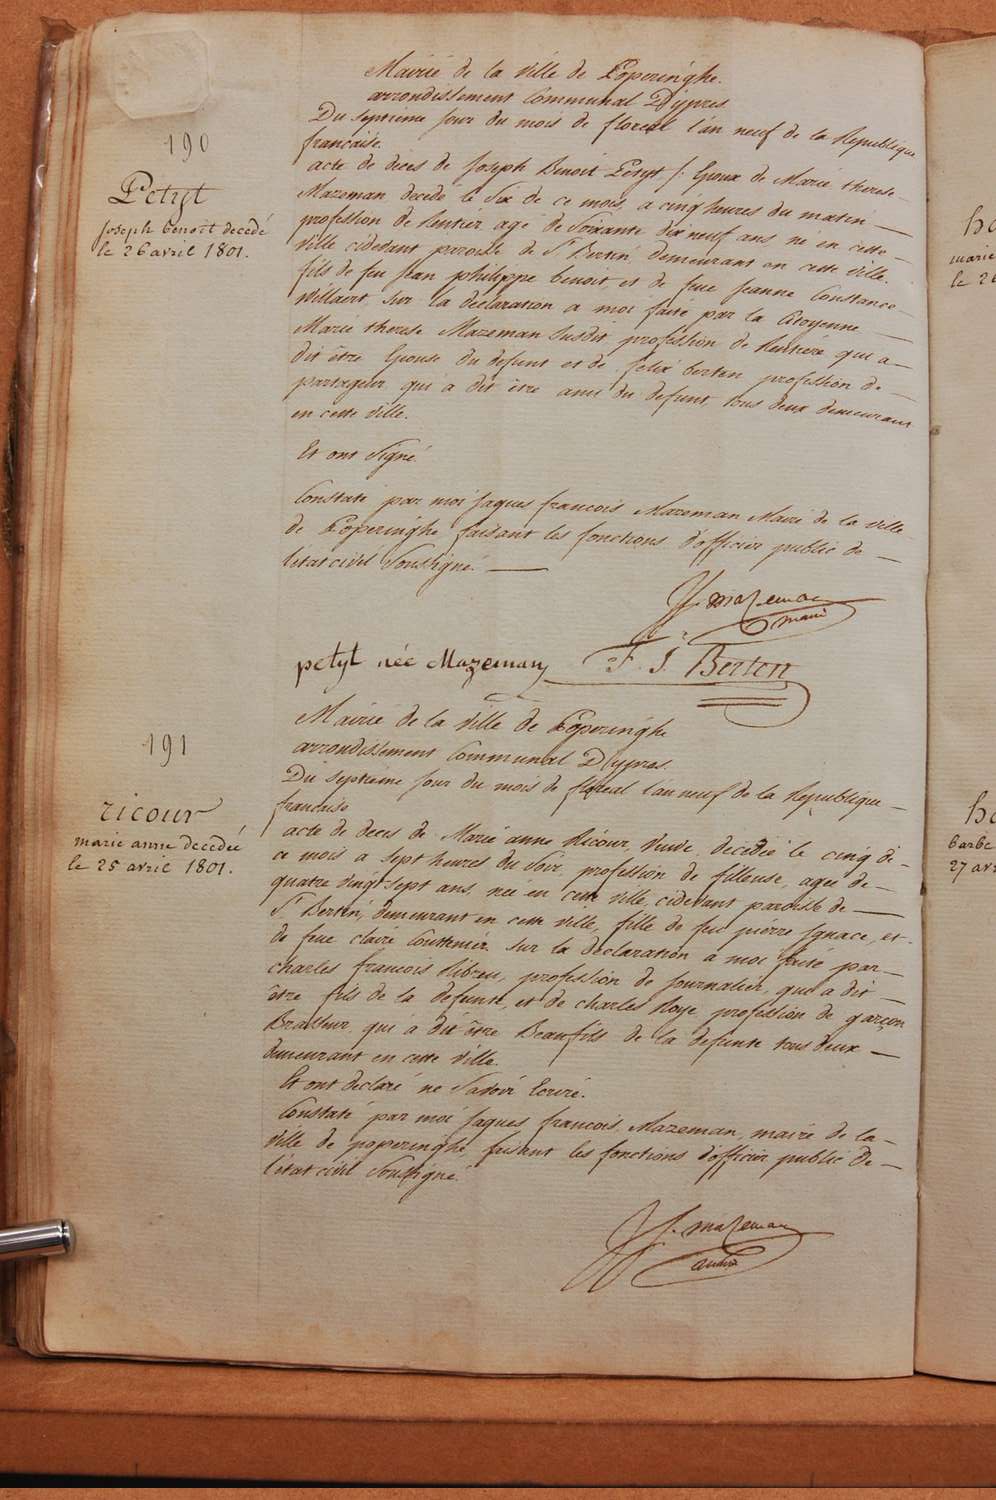 190
Petyt
joseph benoit decedé
le 26 avril 1801.
Mairié de la ville de Poperinghe.
arrondissement Communal D'ypres
Du septième jour du mois de floreal l'an neuf de la Republique
francaise
acte de deces de Joseph Benoit Petyt /: Epoux de Marie therese
Mazeman decedé le Six de ce mois, a cinq heures du matin
profession de Rentier agé de Soixante dix neuf ans né en cette
ville cidevant paroisse de St Bertin, demeurant en cette ville.
fils de feu Jean philippe benoit, et de feue Jeanne Constance
Willaert, sur la declaration a moi faite par la Citoyenne
Marie therese Mazeman susdit profession de Rentiere qui a
dit être Epouse du defunt et de felix berten profession de
partageur qui a dit être ami du defunt, tous deux demeurant
en cette ville.
Et ont Signé.
Constaté par moi Jaques francois Mazeman Maire de la ville
de Poperinghe faisant les fonctions d'officier public de
l'etat civil Soussigné.
J. f. mazeman
maire
petyt née Mazeman
F. J. Berten
191
ricour
marie anne decedeé
le 25 avril 1801.
Mairié de la ville de Poperinghe
arrondissement Communal D'ypres.
Du septième jour du mois de floreal l'an neuf de la Republique
francaise
acte de deces de Marié anne Ricour, veuve, decedée le cinq de
ce mois a sept heures du Soir, profession de filleuse, agée de
quatre vingt sept ans, née en cette ville, cidevant paroisse de
St Bertin, demeurant en cette ville, fille de feu pierre Ignace, et
de feue claire Couttenier sur la declaration a moi faite par
charles francois Ribreu, profession de Journalier, qui a dit
être fils de la defunte, et de charles Roye profession de garçon
Brasseur, qui a dit être Beaufils de la defunte tous deux
demeurant en cette ville.
Et ont declaré ne Savoir Ecrire.
Constaté par moi Jaques francois Mazeman, maire de la
ville de poperinghe, faisant les fonctions d'officier public de
l'etat civil Soussigné.
J. f. mazeman
maire
marie
barbe
27 avr